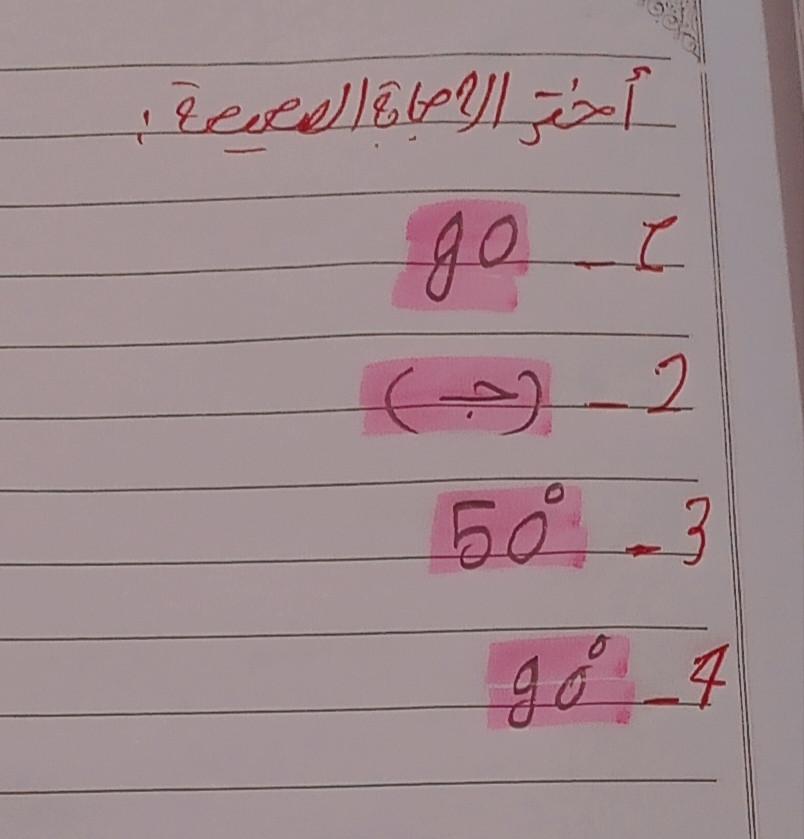 أختر الإجابة الصحيحة :
1 - 90
2 - (جـ)
3 - 50°
4 - 90°